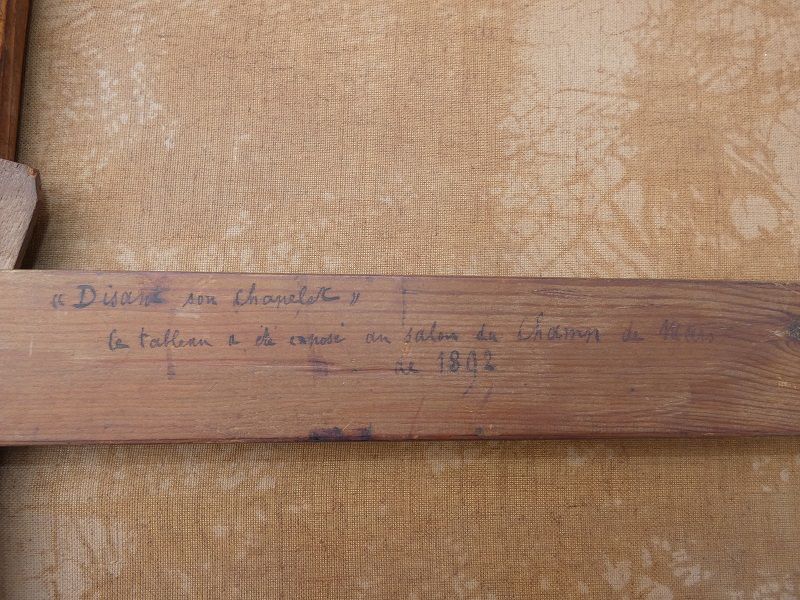 « Disant son chapelet »
Ce tableau a été exposé au salon du Champ de Mars
de 1892